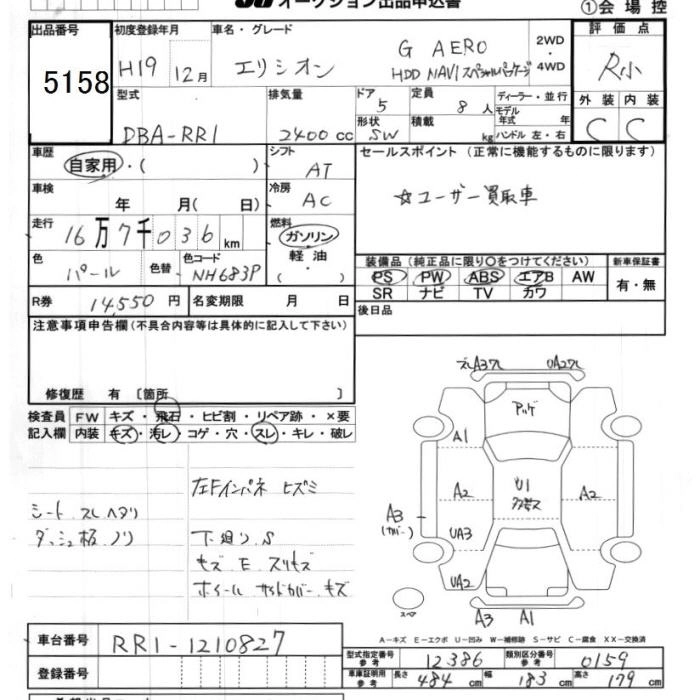 オークション出品申込書 ①会場控
出品番号 5158
初度登録年月 H19 12月
車名・グレード エリシオン G AERO HDD NAVIスペシャルパッケージ
2WD・4WD
評価点 R小
外装 C 内装 C
型式 DBA-RR1
排気量 2400cc
ドア 5
形状 SW
定員 8人
積載 kg
ディーラー・並行
モデル年式 年
ハンドル 左・右
車歴 自家用・( )
シフト AT
セールスポイント (正常に機能するものに限ります)
☆ユーザー買取車
車検 年 月( 日)
冷房 AC
走行 16万7千036km
燃料 ガソリン・軽油・( )
色 パール 色替 色コード NH683P
装備品 (純正品に限り○をつけてください)
PS PW ABS エアB AW
SR ナビ TV カワ
新車保証書 有・無
R券 14,550円 名変期限 月 日
後日品
注意事項申告欄(不具合内容等は具体的に記入して下さい)
修復歴 有〔箇所 〕
検査員記入欄
FW キズ・飛石・ヒビ割・リペア跡・×要
内装 キズ・汚レ・コゲ・穴・スレ・キレ・破レ
シート スレ ヘタリ
ダッシュ板 ノリ
左Fインパネ ヒズミ
下廻り S
キズ E スリキズ
ホイール サイドカバー キズ
UA2
アッゲ
A1
A2
U1
A2
A3
(カバー)
UA3
UA2
スペア
A3 A1
A-キズ E-エクボ U-凹み W-補修跡 S-サビ C-腐食 XX-交換済
車台番号 RR1-1210827
登録番号
型式指定番号 参考 12386 類別区分番号 参考 0159
車庫証明用 参考 長さ 484cm 幅 183cm 高さ 179cm